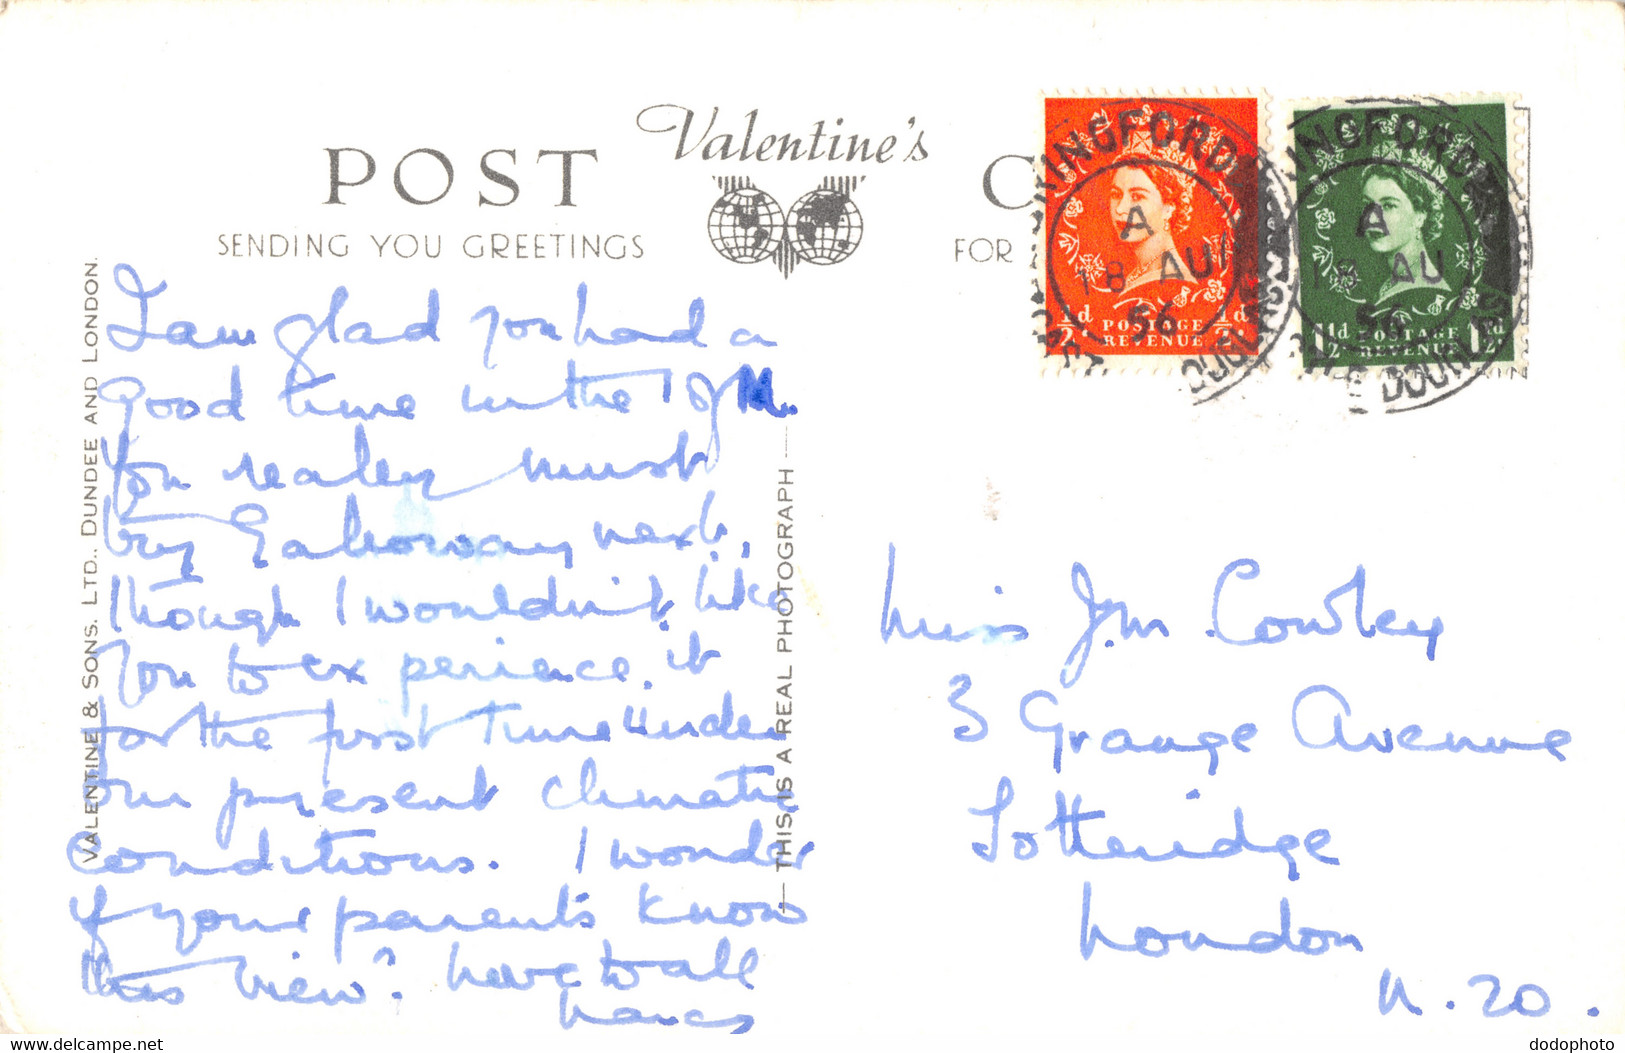 Valentine's
POST C
SENDING YOU GREETINGS FOR
VALENTINE & SONS. LTD., DUNDEE AND LONDON.
THIS IS A REAL PHOTOGRAPH
I am glad you had a
good time in the I of M.
You really must
try Galloway next,
though I wouldn't like
you to experience it
for the first time under
our present climatic
conditions. I wonder
if your parents know
this view? Love to all
Nancy
RINGFORD
A
18 AU
56
CASTLE DOUGLAS
½d POSTAGE REVENUE ½d
INGFORD
A
18 AU
56
DOUGLAS
1½d POSTAGE REVENUE 1½d
Miss J.M. Cowley
3 Grange Avenue
Totteridge
London
N. 20.
www.delcampe.net
dodophoto